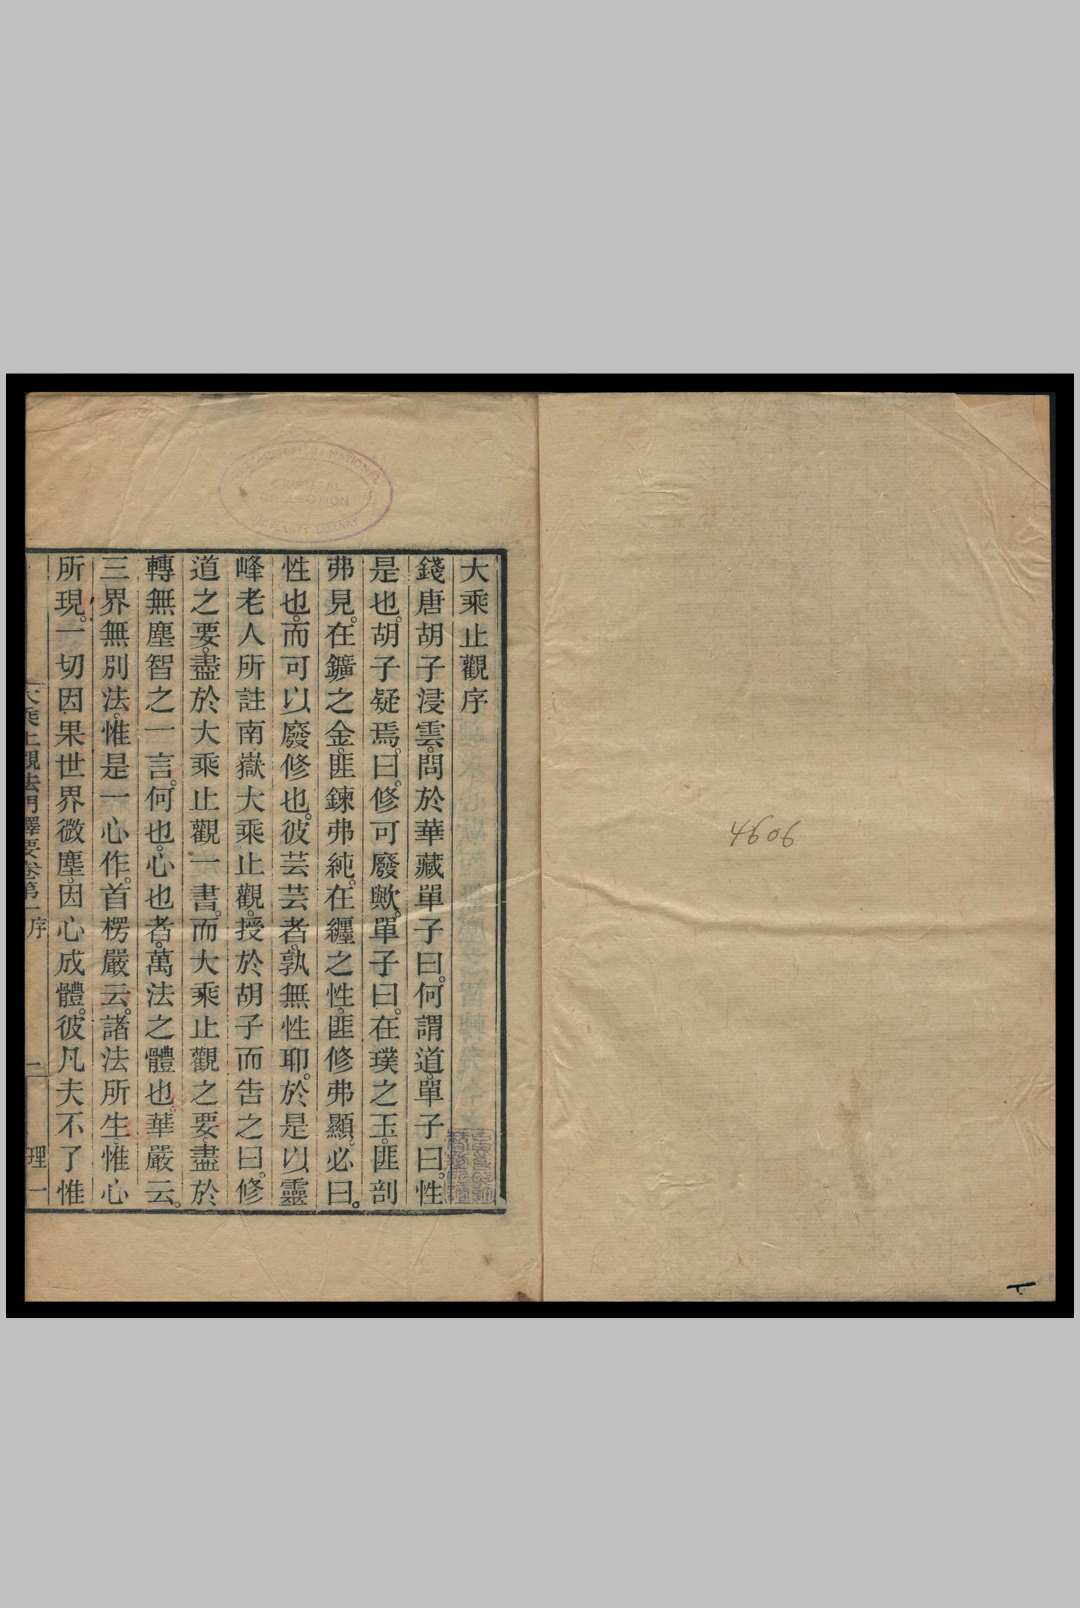 4606
大乘止觀序
錢唐胡子浸雲。問於華藏單子曰。何謂道。單子曰。性
是也。胡子疑焉。曰。修可廢歟。單子曰。在璞之玉。匪剖
弗見。在鑛之金。匪鍊弗純。在纏之性。匪修弗顯。必曰。
性也。而可以廢修也。彼芸芸者。孰無性耶。於是以靈
峰老人所註南嶽大乘止觀。授於胡子而告之曰。修
道之要。盡於大乘止觀一書。而大乘止觀之要。盡於
轉無塵智之一言。何也。心也者。萬法之體也。華嚴云。
三界無別法。惟是一心作。首楞嚴云。諸法所生。惟心
所現。一切因果世界微塵。因心成體。彼凡夫不了惟
大乘止觀法門釋要卷第一序 二 理一
NATIONAL
COLLECTION